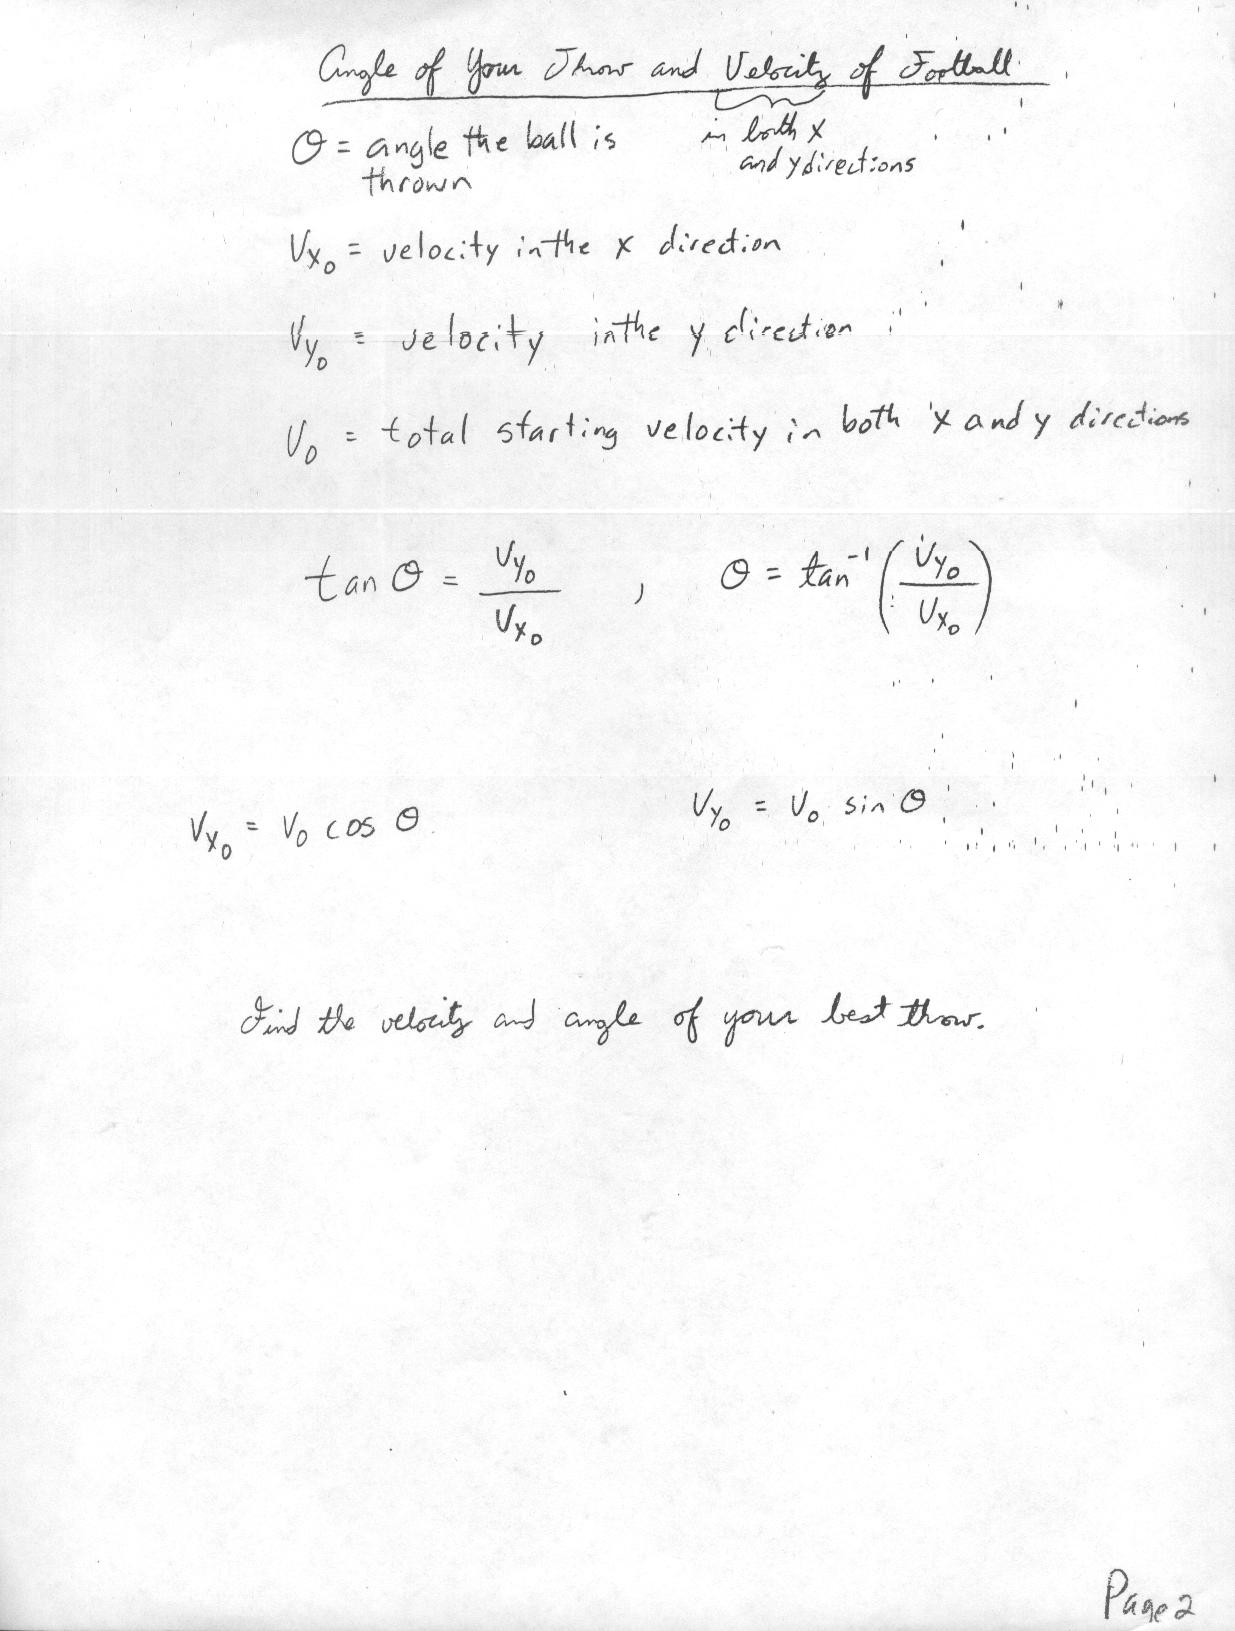 Angle of Your Throw and Velocity of Football
in both x
and y directions
θ = angle the ball is
thrown
Vx₀ = velocity in the x direction
Vy₀ = velocity in the y direction
V₀ = total starting velocity in both x and y directions
tan θ = Vy₀ / Vx₀ , θ = tan⁻¹ (Vy₀ / Vx₀)
Vx₀ = V₀ cos θ
Vy₀ = V₀ sin θ
Find the velocity and angle of your best throw.
Page 2